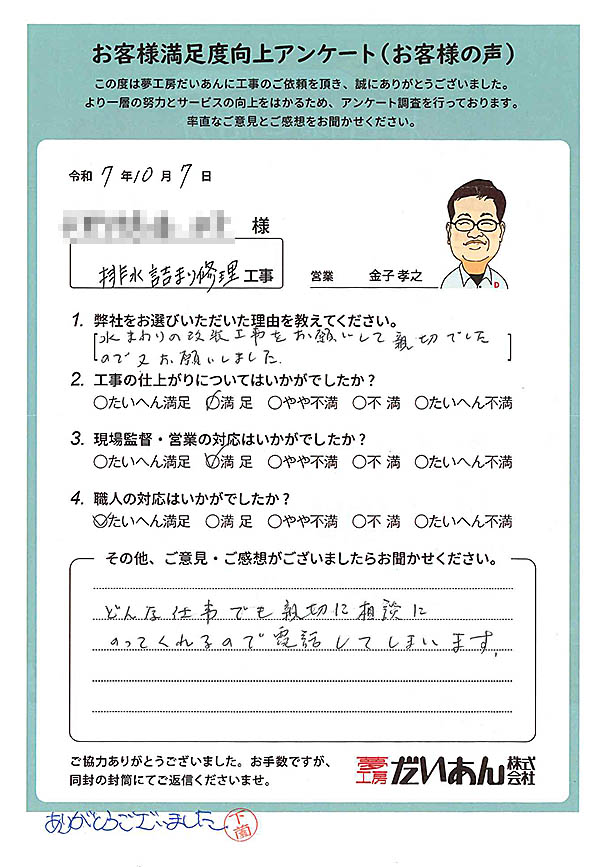 お客様満足度向上アンケート(お客様の声)
この度は夢工房だいあんに工事のご依頼を頂き、誠にありがとうございました。
より一層の努力とサービスの向上をはかるため、アンケート調査を行っております。
率直なご意見とご感想をお聞かせください。
令和 7 年 10 月 7 日
様
排水詰まり修理 工事
営業 金子 孝之
1. 弊社をお選びいただいた理由を教えてください。
水まわりの改装工事をお願いして親切でした
ので又お願いしました.
2. 工事の仕上がりについてはいかがでしたか?
○たいへん満足 ○満 足 ○やや不満 ○不 満 ○たいへん不満
3. 現場監督・営業の対応はいかがでしたか?
○たいへん満足 ○満 足 ○やや不満 ○不 満 ○たいへん不満
4. 職人の対応はいかがでしたか?
○たいへん満足 ○満 足 ○やや不満 ○不 満 ○たいへん不満
その他、ご意見・ご感想がございましたらお聞かせください。
どんな仕事でも親切に相談に
のってくれるので電話してしまいます.
ご協力ありがとうございました。お手数ですが、
同封の封筒にてご返信くださいませ。
夢工房 だいあん 株式会社
ありがとうございました 下薗